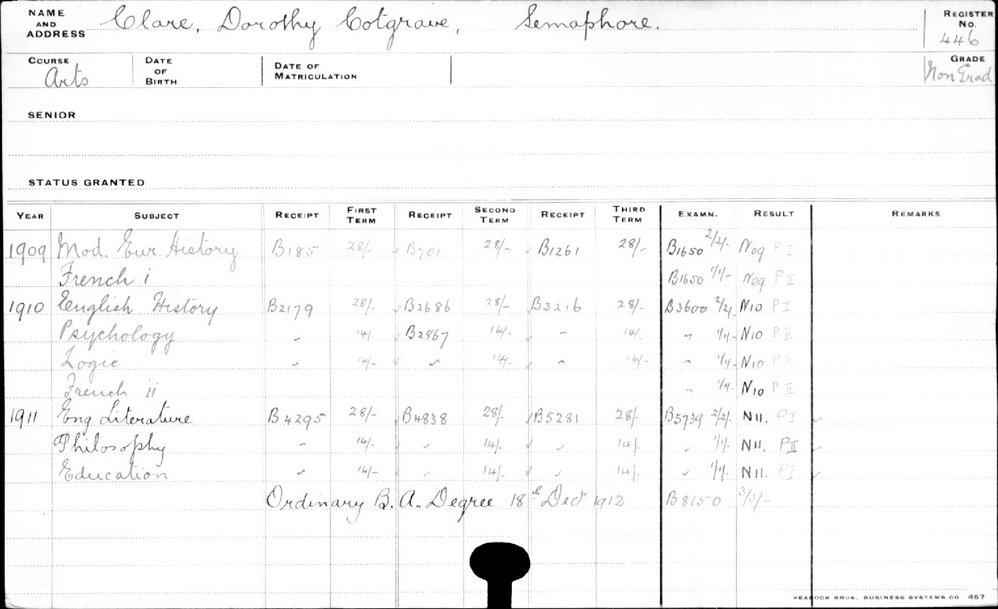 NAME AND ADDRESS Clare, Dorothy Cotgrave, Semaphore. REGISTER No. 446
COURSE Arts DATE OF BIRTH DATE OF MATRICULATION GRADE Non Grad
SENIOR
STATUS GRANTED
YEAR SUBJECT RECEIPT FIRST TERM RECEIPT SECOND TERM RECEIPT THIRD TERM EXAMN. RESULT REMARKS
1909 Mod. Eur. History B185 28/- B701 28/- B1261 28/- B1650 2/2/- N09 P I
French i B1650 1/1/- N09 P II
1910 English History B2179 28/- B2686 28/- B3216 28/- B3600 2/2/- N10 P I
Psychology " 14/- B2867 14/- " 14/- " 1/1/- N10 P II
Logic " 14/- " 14/- " 14/- " 1/1/- N10 P II
French ii " 1/1/- N10 P II
1911 Eng Literature B4295 28/- B4838 28/- B5281 28/- B5739 2/2/- N11. P I
Philosophy " 14/- " 14/- " 14/- " 1/1/- N11. P II
Education " 14/- " 14/- " 14/- " 1/1/- N11. P I
Ordinary B.A. Degree 18th Decr 1912 B8150 3/3/-
PEACOCK BROS. BUSINESS SYSTEMS CO 457